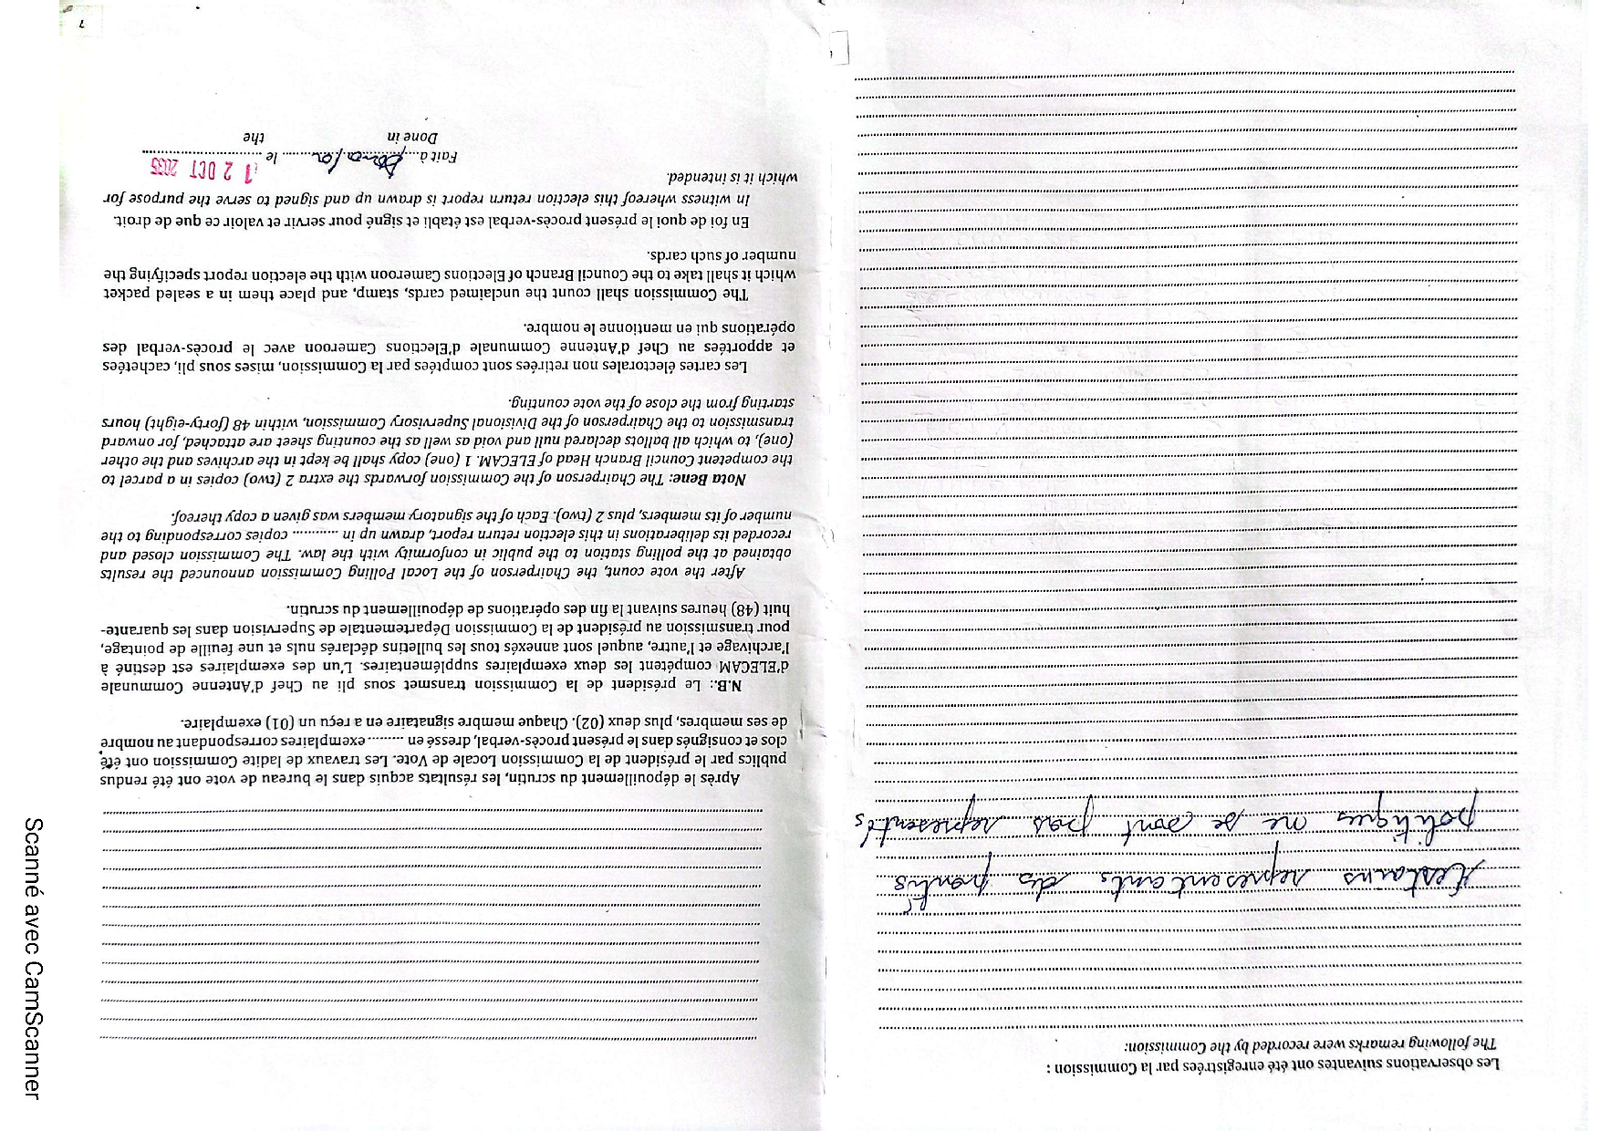 Les observations suivantes ont été enregistrées par la Commission :
The following remarks were recorded by the Commission:
Certains representants des partis
politiques ne se sont pas representés
Après le dépouillement du scrutin, les résultats acquis dans le bureau de vote ont été rendus
publics par le président de la Commission Locale de Vote. Les travaux de ladite Commission ont été
clos et consignés dans le présent procès-verbal, dressé en ......... exemplaires correspondant au nombre
de ses membres, plus deux (02). Chaque membre signataire en a reçu un (01) exemplaire.
N.B.: Le président de la Commission transmet sous pli au Chef d'Antenne Communale
d'ELECAM compétent les deux exemplaires supplémentaires. L'un des exemplaires est destiné à
l'archivage et l'autre, auquel sont annexés tous les bulletins déclarés nuls et une feuille de pointage,
pour transmission au président de la Commission Départementale de Supervision dans les quarante-
huit (48) heures suivant la fin des opérations de dépouillement du scrutin.
After the vote count, the Chairperson of the Local Polling Commission announced the results
obtained at the polling station to the public in conformity with the law. The Commission closed and
recorded its deliberations in this election return report, drawn up in ........... copies corresponding to the
number of its members, plus 2 (two). Each of the signatory members was given a copy thereof.
Nota Bene: The Chairperson of the Commission forwards the extra 2 (two) copies in a parcel to
the competent Council Branch Head of ELECAM. 1 (one) copy shall be kept in the archives and the other
(one), to which all ballots declared null and void as well as the counting sheet are attached, for onward
transmission to the Chairperson of the Divisional Supervisory Commission, within 48 (forty-eight) hours
starting from the close of the vote counting.
Les cartes électorales non retirées sont comptées par la Commission, mises sous pli, cachetées
et apportées au Chef d'Antenne Communale d'Elections Cameroon avec le procès-verbal des
opérations qui en mentionne le nombre.
The Commission shall count the unclaimed cards, stamp, and place them in a sealed packet
which it shall take to the Council Branch of Elections Cameroon with the election report specifying the
number of such cards.
En foi de quoi le présent procès-verbal est établi et signé pour servir et valoir ce que de droit.
In witness whereof this election return report is drawn up and signed to serve the purpose for
which it is intended.
Fait à ........ le 12 OCT 2025
Done in the
7
Scanné avec CamScanner